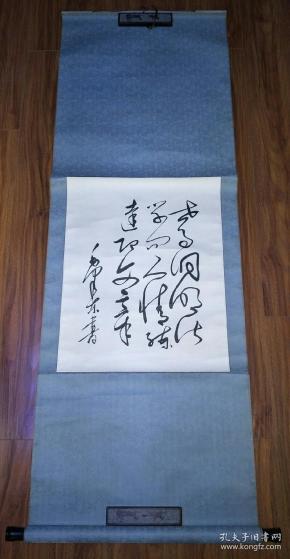 世事洞明皆
学问人情练
达即文章
毛泽东书
孔夫子旧书网
www.kongfz.com